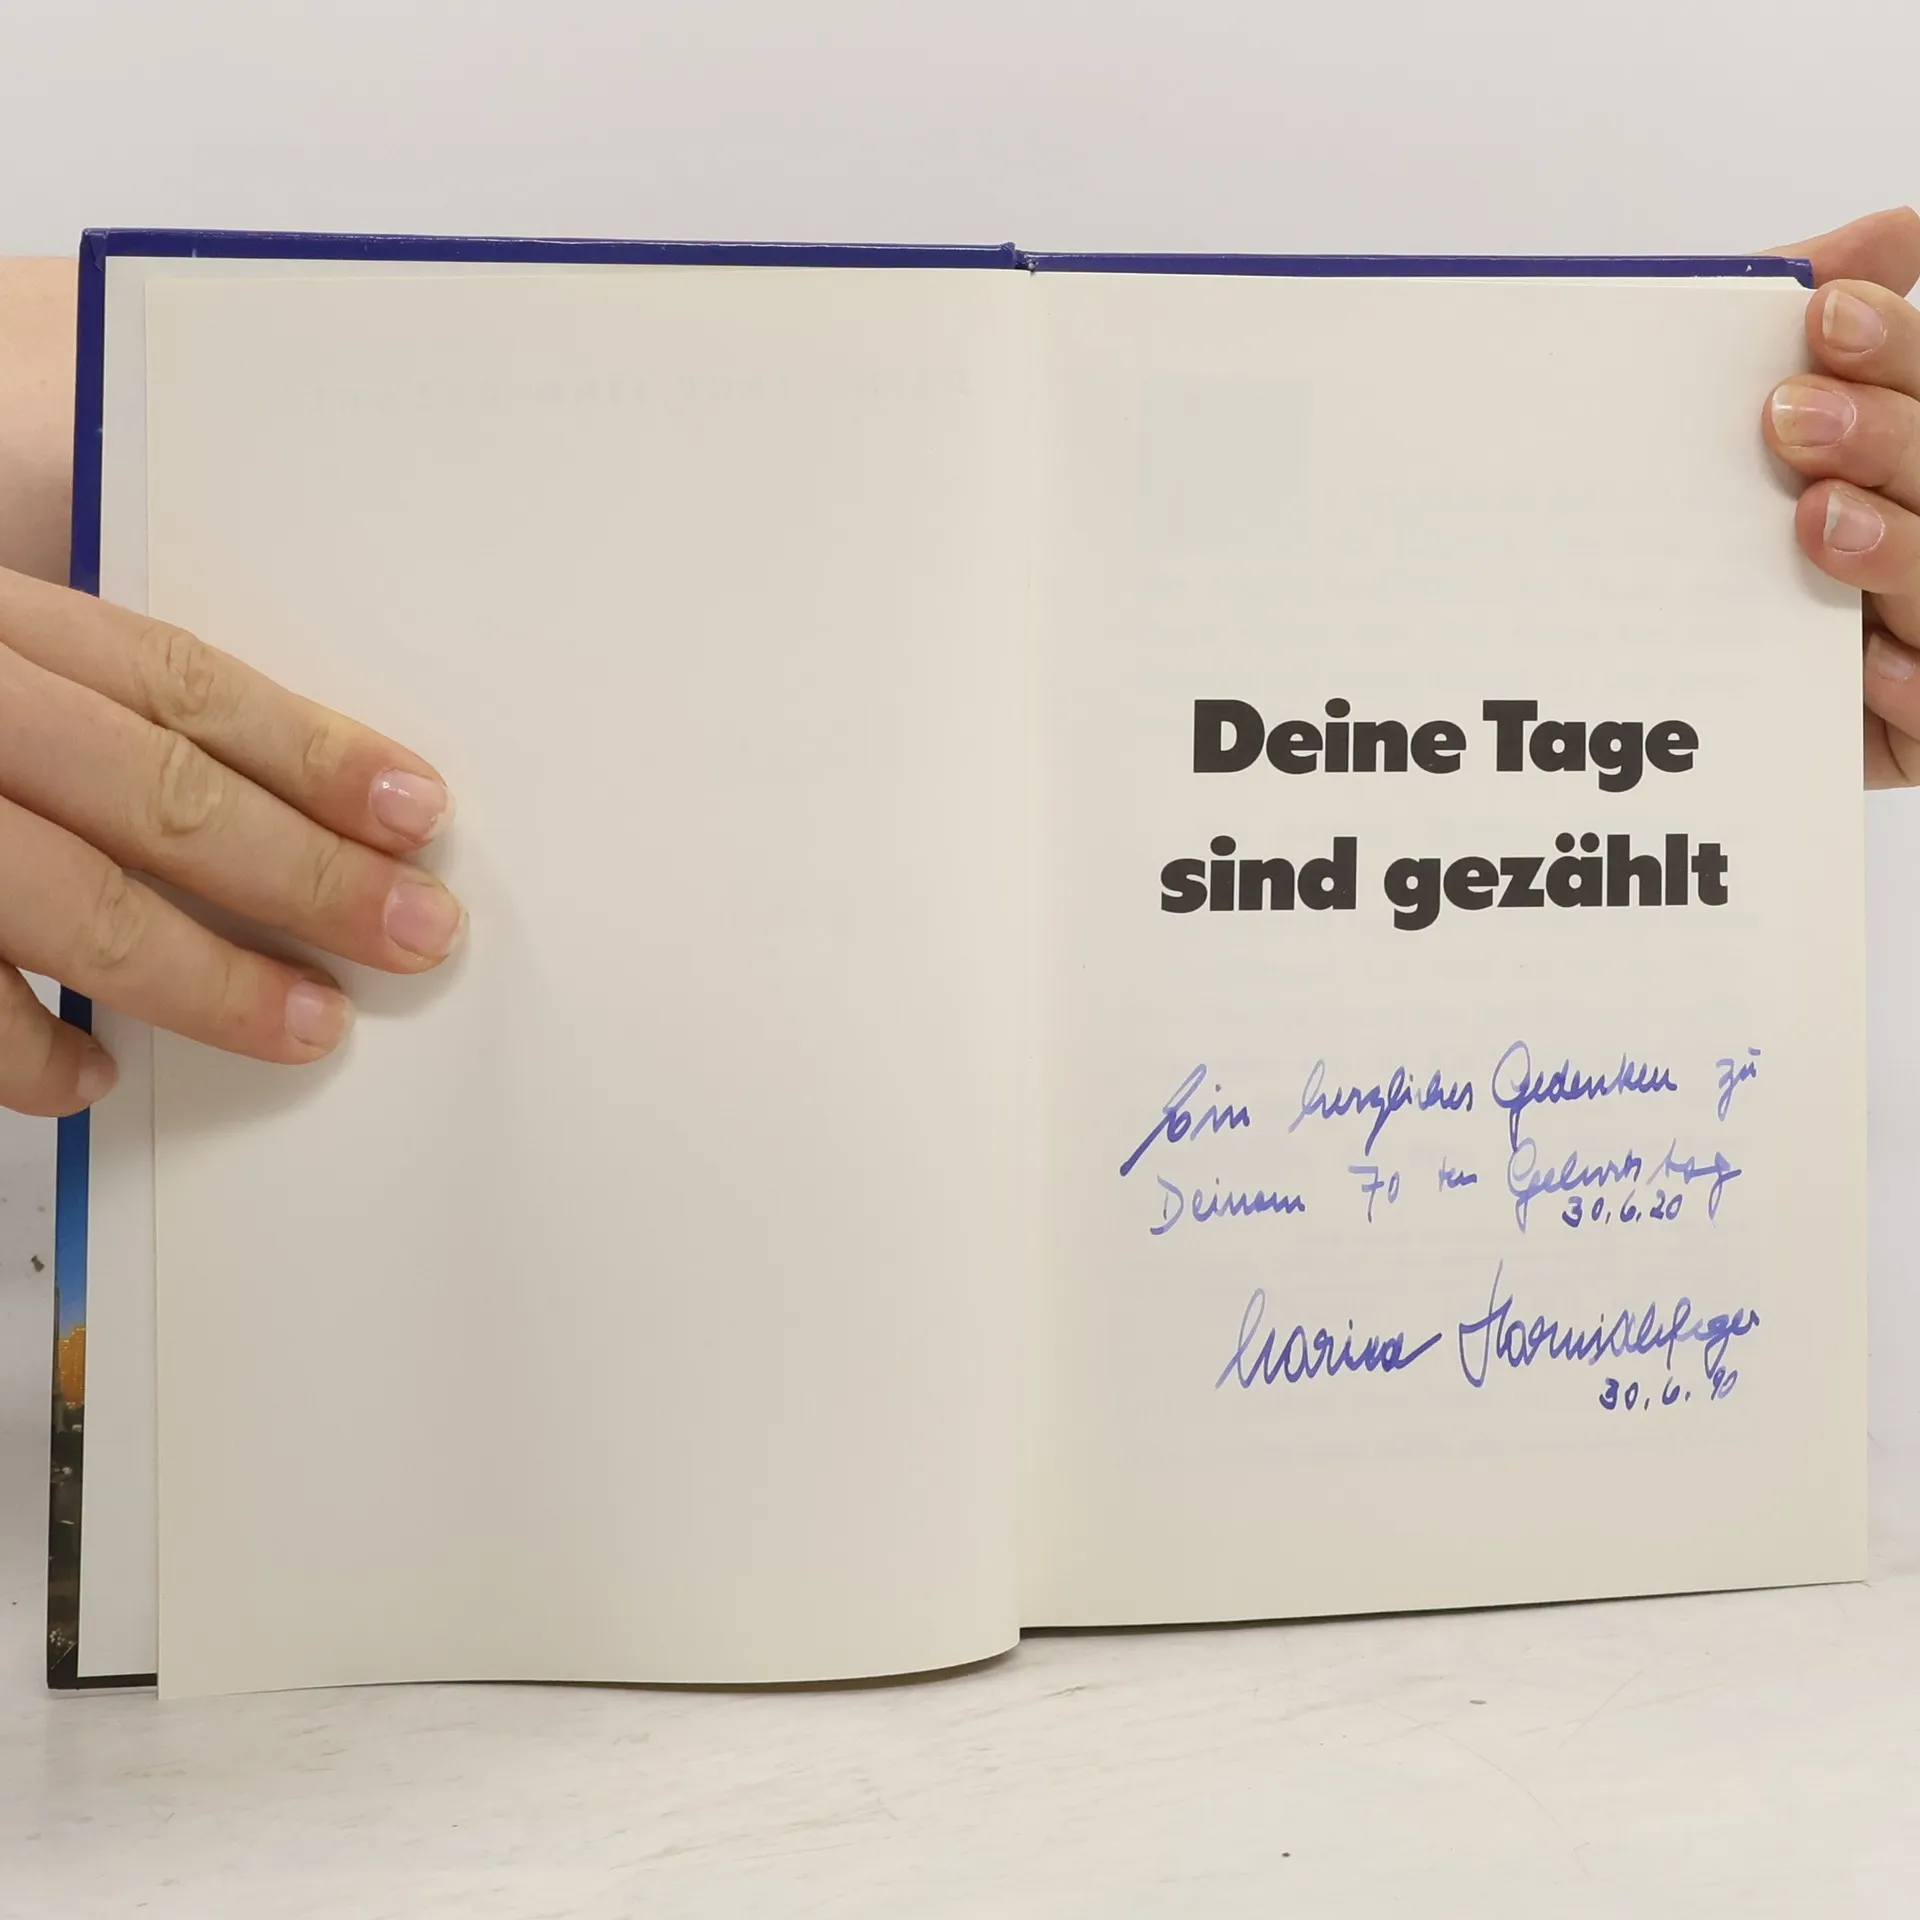 Deine Tage
sind gezählt
Ein herzliches Gedenken zu
Deinem 70 ten Geburtstag
30.6.20
Marina
30.6.90